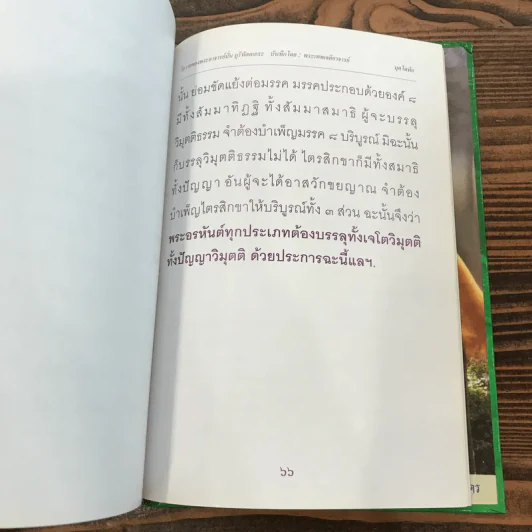 บันทึกโดย : พระ
มุตโตทัย
นั้น ย่อมขัดแย้งต่อมรรค มรรคประกอบด้วยองค์ ๘
มีทั้งสัมมาทิฏฐิ ทั้งสัมมาสมาธิ ผู้จะบรรลุ
วิมุตติธรรม จำต้องบำเพ็ญมรรค ๘ บริบูรณ์ มิฉะนั้น
ก็บรรลุวิมุตติธรรมไม่ได้ ไตรสิกขาก็มีทั้งสมาธิ
ทั้งปัญญา อันผู้จะได้อาสวักขยญาณ จำต้อง
บำเพ็ญไตรสิกขาให้บริบูรณ์ทั้ง ๓ ส่วน ฉะนั้นจึงว่า
พระอรหันต์ทุกประเภทต้องบรรลุทั้งเจโตวิมุตติ
ทั้งปัญญาวิมุตติ ด้วยประการฉะนี้แลฯ.
๖๖